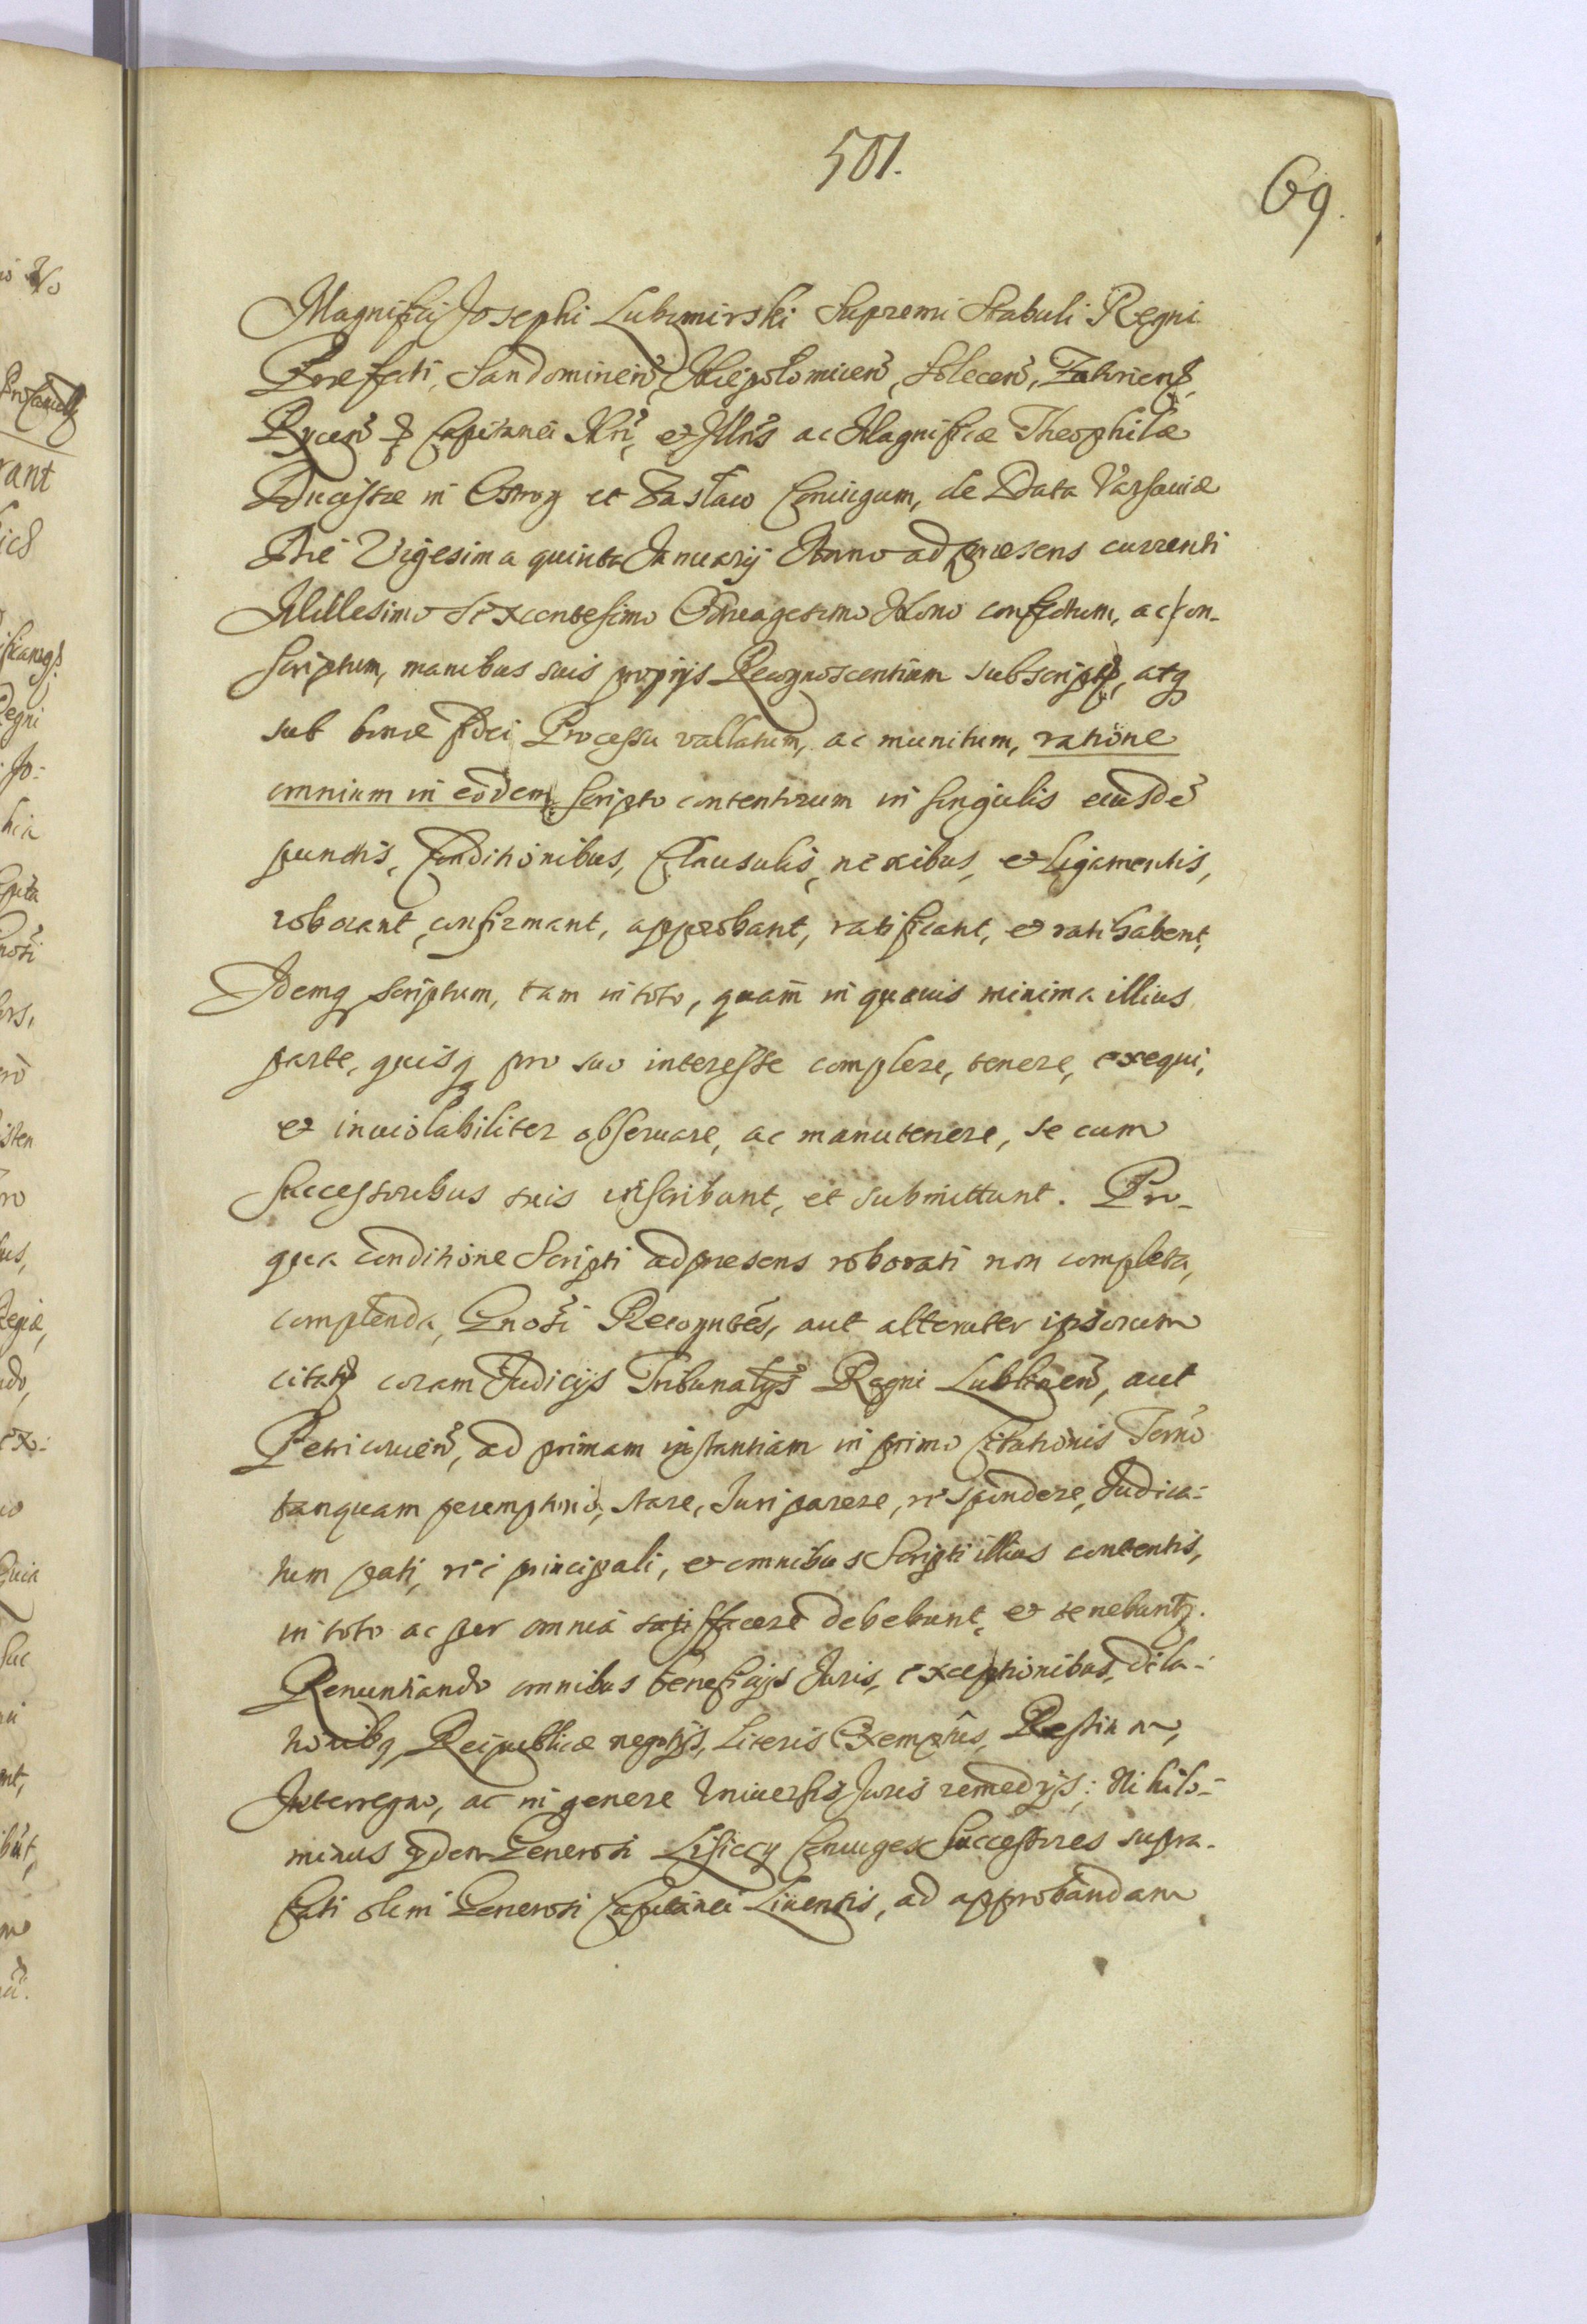 501.
69.
Magnifici Josephi Lubomirski Supremi Stabuli Regni
Præfecti, Sandominen̄, Niepolomicen̄, Solecen̄, Zatorien̄,
Rycen̄ Capitanei Nr̄i, et Illr̄is ac Magnificæ Theophilæ
Ducissæ in Ostrog et Zasław Coniugum, de Data Varsaviæ
Die Vigesima quinta Januarij Anno ad præsens currenti
Millesimo Sexcentesimo Octuagesimo Nono confectum, ac con-
scriptum, manibus suis proprijs Recognoscentium subscriptū, atq
sub bonæ fidei Processu vallatum, ac munitum, ratione
omnium in eodem Scripto contentorum in singulis eiusdē
punctis, Conditionibus, Clausulis, nexibus, et Ligamentis,
roborant, confirmant, approbant, ratificant, et ratihabent,
Idemq scriptum, tam in toto, quam in quavis minima illius
parte, quisq pro suo interesse complere, tenere, exequi,
et inviolabiliter observare, ac manutenere, se cum
Successoribus suis inscribunt, et submittunt. Pro-
qua conditione Scripti ad præsens roborati non completa,
complenda, Gnōsi Recognītes, aut alteruter ipsorum
citatū coram Judicijs Tribunalijs Regni Lublinen̄, aut
Petricovien̄, ad primam instantiam in primo Citationis Term̄o
tanquam peremptorio, stare, Juri parere, respondere, Judica-
tum pati, rei principali, et omnibus Scripti illius contentis,
in toto ac per omnia satisfacere debebunt, et tenebuntz.
Renuntiando omnibus beneficijs Juris, exceptionibus, dila-
tionibq, Reipublicæ negotijs, Literis Exemptūs,
Interregno, ac in genere Universis Juris remedijs: Nihilo-
minus ijdem Generosi Lisieccy Coniuges Successores supra-
fati olim Generosi Capitanei Livensis, ad approbandam